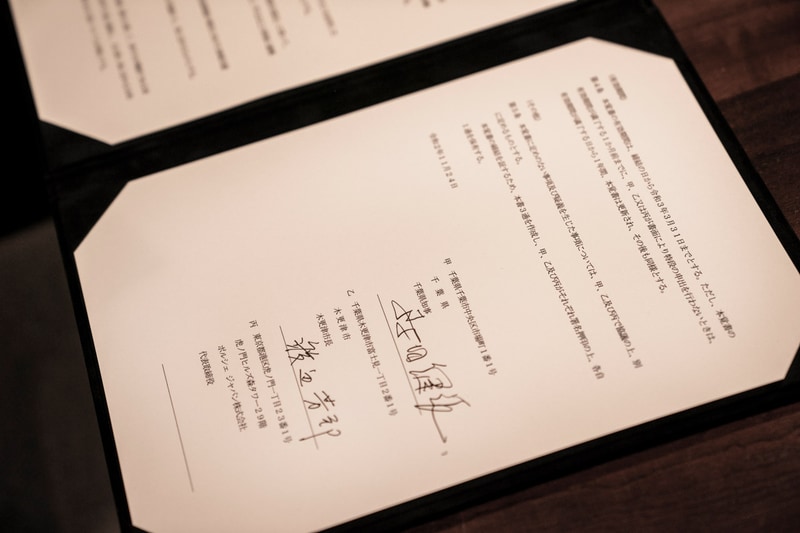 (有効期間)
第4条 本覚書の有効期間は、締結の日から令和3年3月31日までとする。ただし、本覚書の
有効期間が満了する1か月前までに、甲、乙又は丙が書面により特段の申出を行わないときは、
有効期間が満了する日から1年間、本覚書は更新され、その後も同様とする。
(その他)
第5条 本覚書に定めのない事項及び疑義を生じた事項については、甲、乙及び丙で協議の上、別
に定めるものとする。
本覚書の締結を証するため、本書3通を作成し、甲、乙及び丙がそれぞれ署名押印の上、各自
1通を保有する。
令和2年11月24日
甲 千葉県千葉市中央区市場町1番1号
千葉県
千葉県知事
乙 千葉県木更津市富士見一丁目2番1号
木更津市
木更津市長 渡辺芳邦
丙 東京都港区虎ノ門一丁目23番1号
虎ノ門ヒルズ森タワー29階
ポルシェ ジャパン株式会社
代表取締役